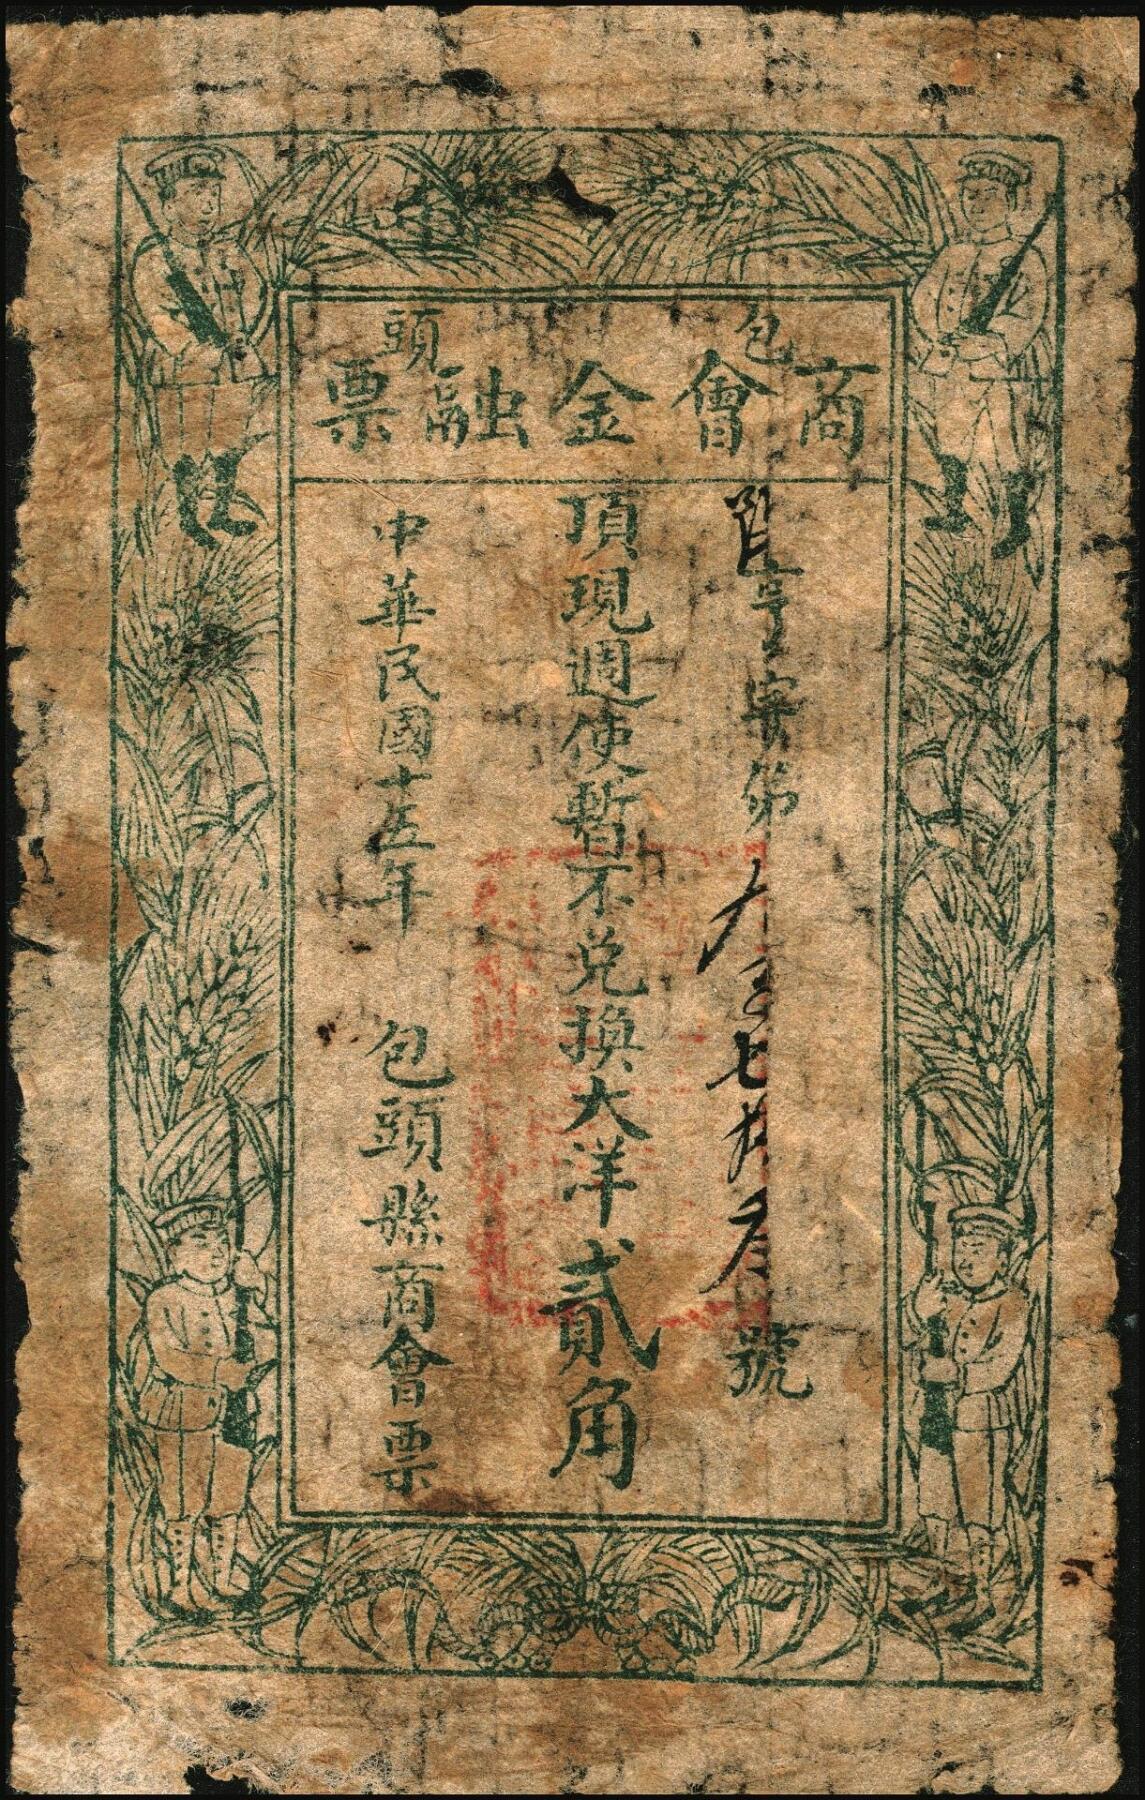 包頭
商會金融票
字第 叁 七拾叁 號
頂現週使暫不兌換大洋貳角
中華民國十五年 包頭縣商會票